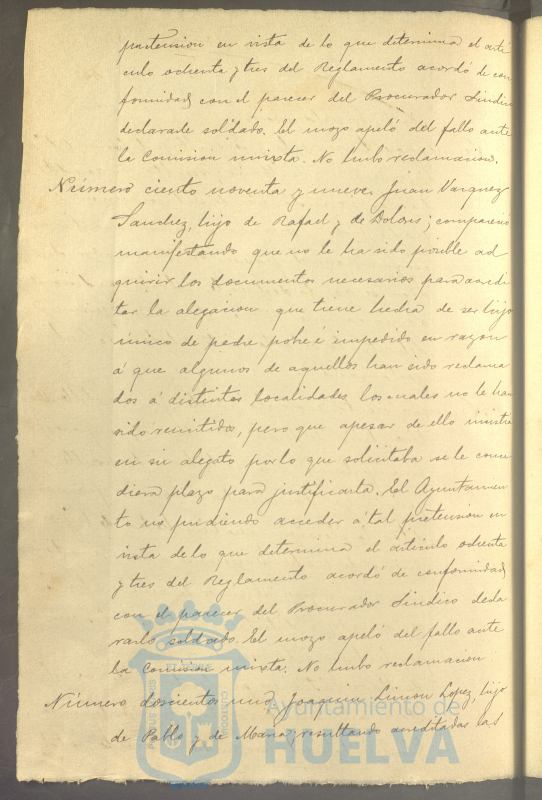 pretension en vista de lo que determina el arti
culo ochenta y tres del Reglamento acordó de con
formidad con el parecer del Procurador Sindico
declararle soldado. El mozo apeló del fallo ante
la Comision mixta. No hubo reclamacion.
Número ciento noventa y nueve. Juan Vazquez
Sanchez, hijo de Rafael y de Dolores; compareció
manifestando que no le ha sido posible ad
quirir los documentos necesarios para acredi
tar la alegacion que tiene hecha de ser hijo
único de padre pobre é impedido en razon
á que algunos de aquellos han sido reclama
dos á distintas localidades los cuales no le han
sido remitidos, pero que apesar de ello insiste
en su alegato por lo que solicitaba se le conce
diera plazo para justificarla. El Ayuntamien
to no pudiendo acceder á tal pretension en
vista de lo que determina el articulo ochenta
y tres del Reglamento acordó de conformidad
con el parecer del Procurador Sindico decla
rarlo soldado. El mozo apeló del fallo ante
la Comision mixta. No hubo reclamacion
Número doscientos uno Joaquin Limon Lopez, hijo
de Pablo y de Maria; resultando acreditadas las
Ayuntamiento de
HUELVA